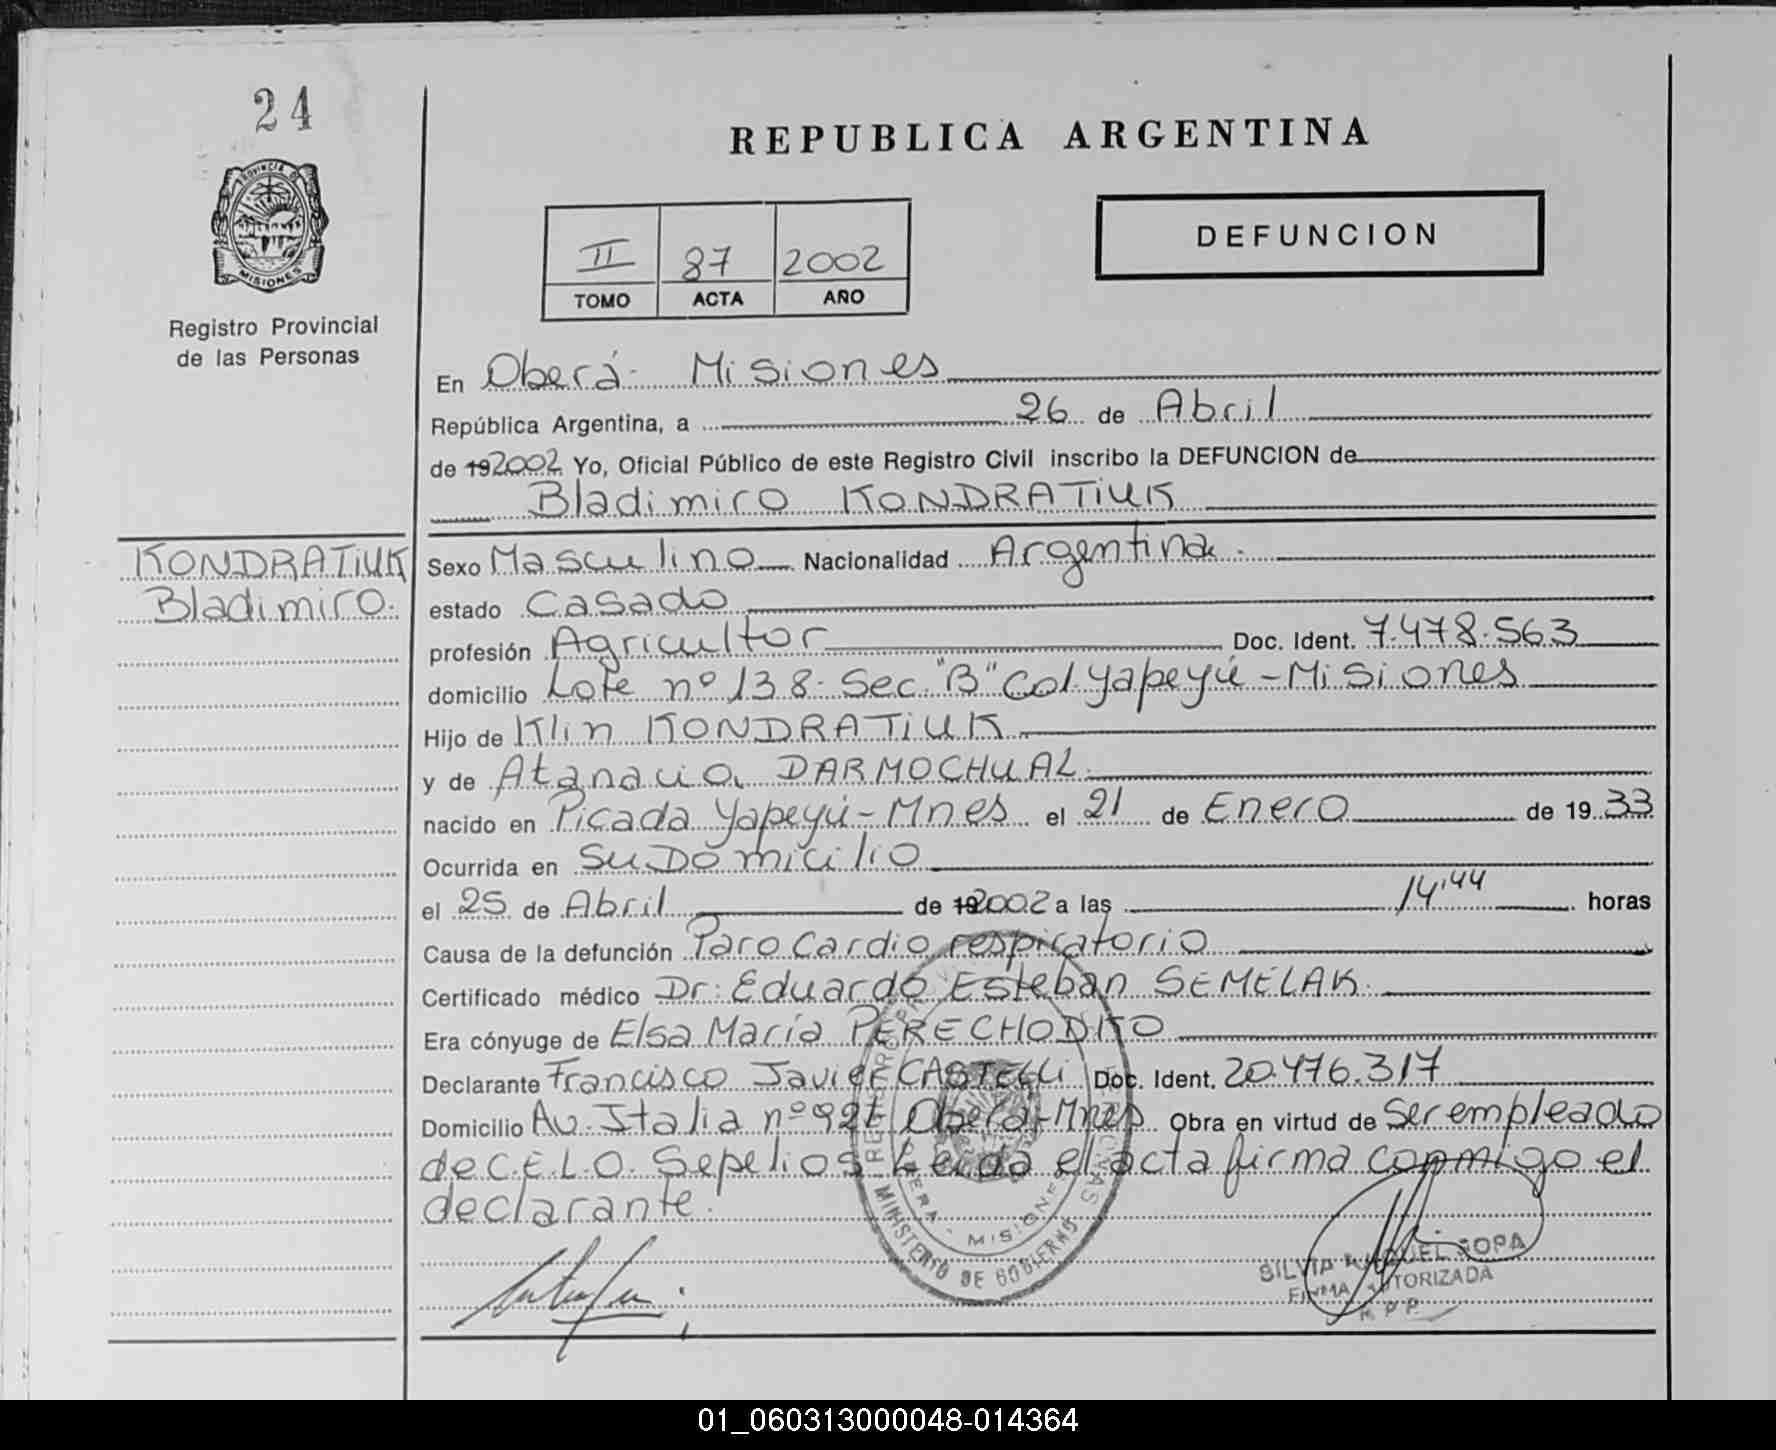 24
PROVINCIA DE
MISIONES
Registro Provincial
de las Personas
REPUBLICA ARGENTINA
II 87 2002
TOMO ACTA AÑO
DEFUNCION
En Oberá- Misiones
República Argentina, a 26 de Abril
de 192002 Yo, Oficial Público de este Registro Civil inscribo la DEFUNCION de
Bladimiro KONDRATIUK
KONDRATIUK
Bladimiro.
Sexo Masculino Nacionalidad Argentina.
estado Casado
profesión Agricultor Doc. Ident. 7.478.563
domicilio Lote nº 138- Sec "B" Col. Yapeyú - Misiones
Hijo de Klin KONDRATIUK
y de Atanacia DARMOCHUAL
nacido en Picada Yapeyú - Mnes el 21 de Enero de 19 33
Ocurrida en Su Domicilio
el 25 de Abril de 192002 a las 14'44 horas
Causa de la defunción Paro Cardio respiratorio
Certificado médico Dr: Eduardo Esteban SEMELAK.
Era cónyuge de Elsa María PERECHODKO
Declarante Francisco Javier CASTELLI Doc. Ident. 20.476.317
Domicilio Av. Italia nº 927 Oberá - Mnes Obra en virtud de Ser empleado
de C.E.L.O. Sepelios Leída el acta firma conmigo el
declarante.
MINISTERIO DE GOBIERNO
OBERA - MISIONES
SILVIA RAQUEL SOPA
FIRMA AUTORIZADA
01_060313000048-014364